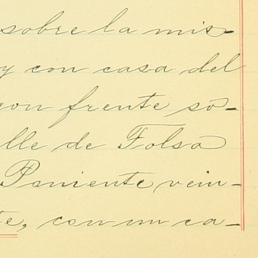 sobre la mis-
y con casa del
con frente so-
lle de Folsa
Poniente vein-
te, con un ca-